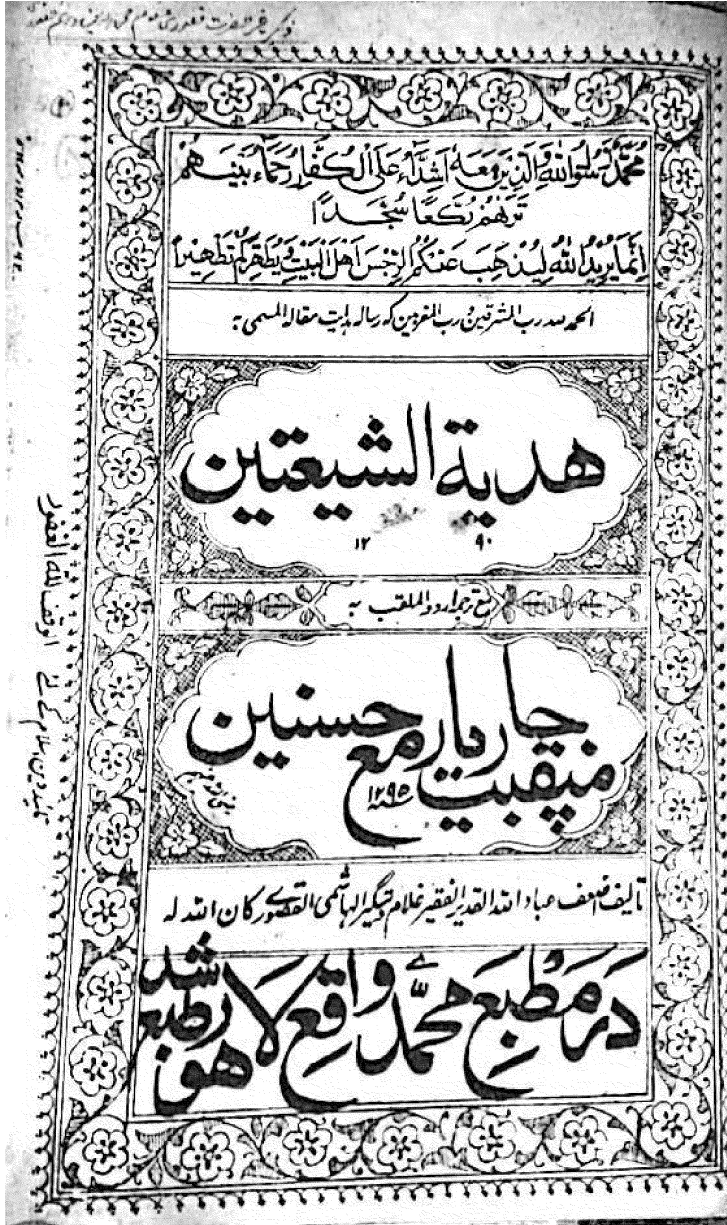 محمد رسول الله والذین معه اشداء علی الکفار رحماء بینهم
ترٰهم رکعا سجدا
انما یرید الله لیذهب عنکم الرجس اهل البیت ویطهرکم تطهیرا
الحمد لله رب المشرقین و رب المغربین که رساله هدایت مقاله المسمی به
هدیة الشیعتین
۱۲۹۰
مع ترجمه اردو الملقب به
منقبت چار یار مع حسنین
۱۲۹۵
تالیف اضعف عباد الله القدیر الفقیر غلام دستگیر الهاشمی القصوری کان الله له
در مطبع محمدی واقع لاهور طبع شد
الوقف لله الغفور